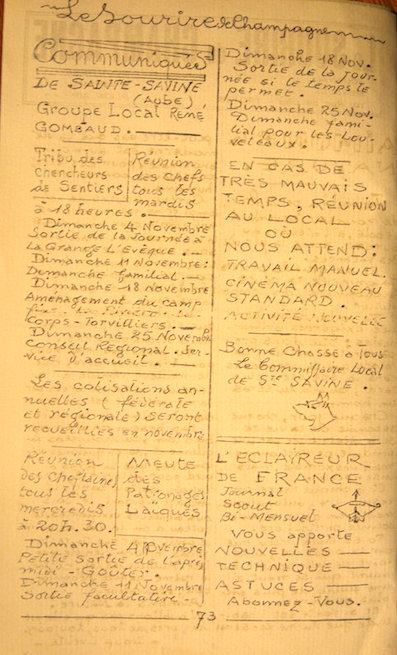 Le Sourire de Champagne
Communiqués
DE SAINTE-SAVINE
(Aube)
Groupe Local René
GOMBAUD.
Tribu des
chercheurs
de Sentiers
Réunion
des Chefs
tous les
mardis
à 18 heures.
Dimanche 4 Novembre
Sortie de la Journée à
La Grange L'Evêque.
Dimanche 11 Novembre:
Dimanche familial.
Dimanche 18 Novembre
Aménagement du camp
fixe
Corps-Torvilliers.
Dimanche 25 Novemb.
Conseil Régional. Ser-
vice d'accueil.
Les cotisations an-
nuelles (fédérale
et régionale) seront
recueillies en novembre
Réunion
des Cheftaines
tous les
mercredis
à 20h.30.
Meute
des
Patronages
Laïques
Dimanche 4 Novembre
Petite Sortie de l'après
midi - Goûter.
Dimanche 11 Novembre
Sortie facultative.-
Dimanche 18 Nov.
Sortie de la Jour-
née si le temps le
permet.
Dimanche 25 Nov.
Dimanche fami-
lial pour les Lou-
veteaux.
EN CAS DE
TRÈS MAUVAIS
TEMPS, RÉUNION
AU LOCAL
OÙ
NOUS ATTEND:
TRAVAIL MANUEL.
CINÉMA NOUVEAU
STANDARD.
ACTIVITÉ NOUVELLE
Bonne Chasse à Tous
Le Commissaire Local
de Ste SAVINE.
L'ECLAIREUR
DE FRANCE
Journal
Scout
Bi-Mensuel
Vous apporte
NOUVELLES
TECHNIQUE
ASTUCES
Abonnez-Vous.
73